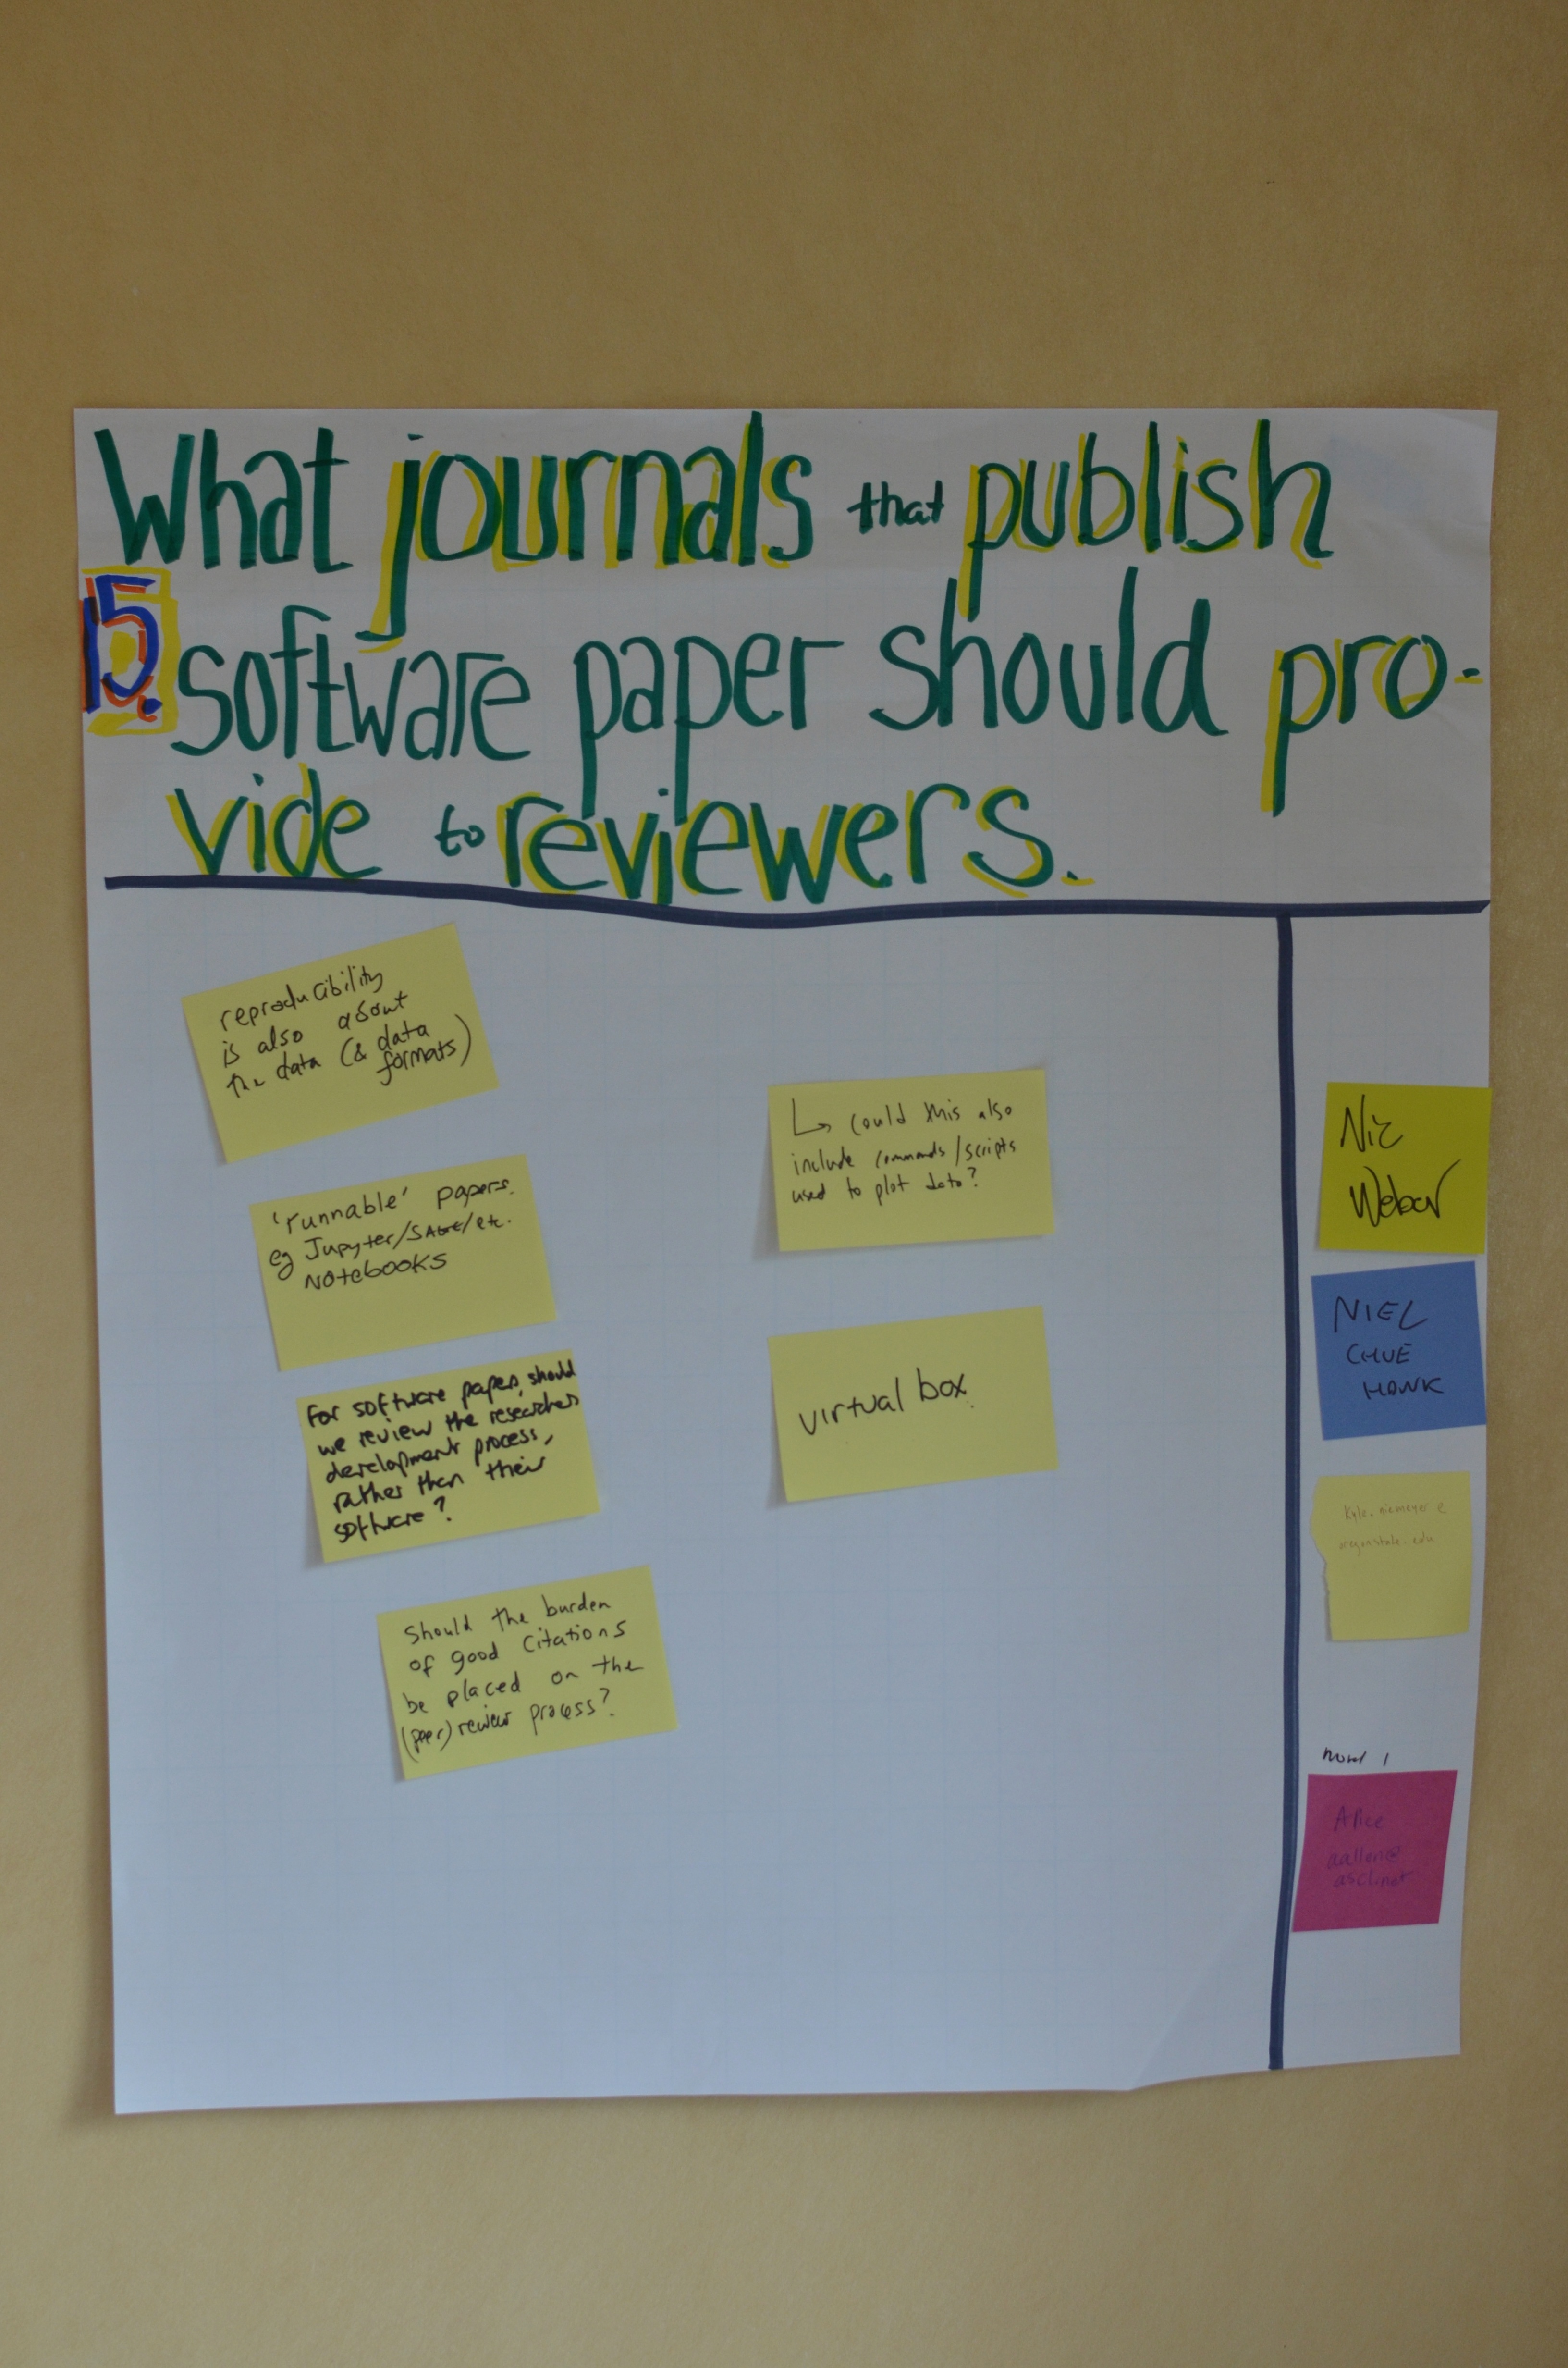 What journals that publish
15.
software paper should pro-
vide to reviewers.
reproducibility
is also about
the data (& data
formats)
'runnable' papers.
eg Jupyter/SAGE/etc.
NOtebOOKS
For software papers, should
we review the researchers
development process,
rather than their
software?
Should the burden
of good citations
be placed on the
(peer) review process?
↳ could this also
include commands/scripts
used to plot data?
virtual box
Nic
Weber
NIEL
CHUE
HONK
Kyle.niemeyer@
oregonstate.edu
Alice
aallen@
ascl.net